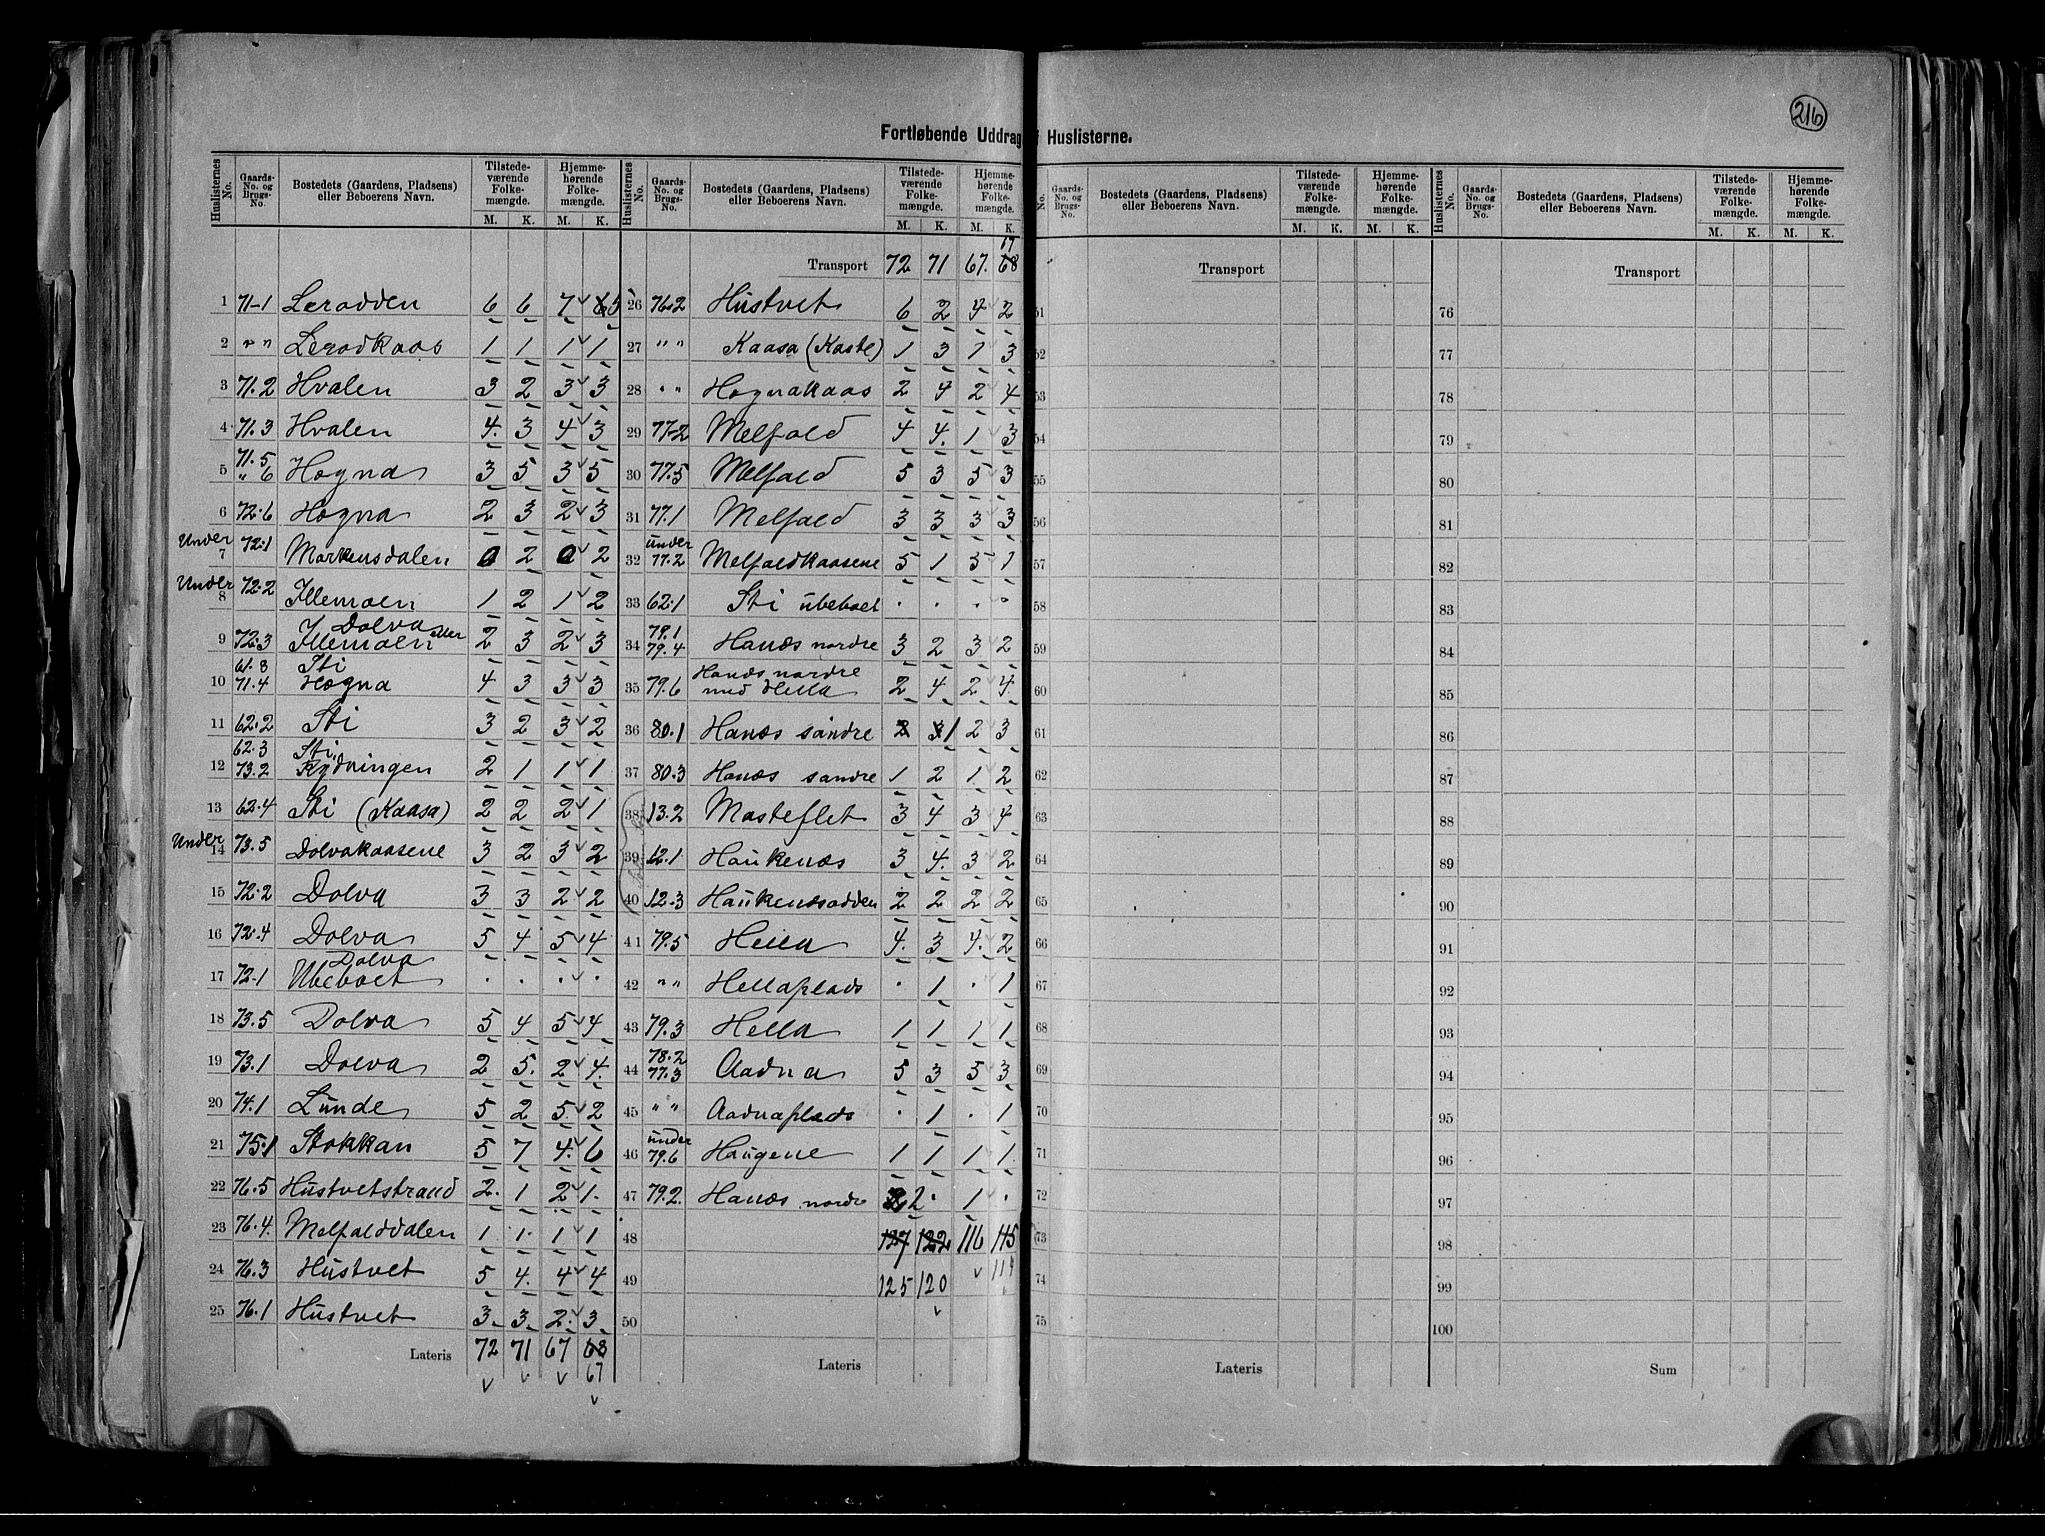 216
Fortløbende Uddrag af Huslisterne.
Huslisternes No. Gaards-No. og Brugs-No. Bostedets (Gaardens, Pladsens) eller Beboerens Navn. Tilstedeværende Folkemængde. M. K. Hjemmehørende Folkemængde. M. K.
1 71-1 Lerodden 6 6 7 6 5
2 " " Lerodkaas 1 1 1 1
3 71.2 Hvalen 3 2 3 3
4 71.3 Hvalen 4. 3 4 3
5 71.5 " 6 Hogna 3 5 3 5
6 72.6 Hogna 2 3 2 3
Under 7 72.1 Morkensdalen 0 2 0 2
Under 8 72.2 Illemoen 1 2 1 2
9 72.3 Dolva eller Illemoen 2 3 2 3
10 61.8 71.4 Sti Hogna 4 3 3 3
11 62.2 Sti 3 2 3 2
12 62.3 73.2 Sti Rydningen 2 1 1 1
13 62.4 Sti (Kaasa) 2 2 2 1
Under 14 73.5 Dolvakaasene 3 2 3 2
15 72.2 Dolva 3 3 2 2
16 72.4 Dolva 5 4 5 4
17 72-1 Dolva Ubeboet . . . .
18 73.5 Dolva 5 4 5 4
19 73.1 Dolva 2 5. 2 4.
20 74.1 Lunde 5 2 5 2
21 75.1 Stokkan 5 7 4. 6
22 76.5 Hustvetstrand 2. 1 2 1.
23 76.4. Melfalddalen 1 1. 1 1
24 76.3 Hustvet 5 4. 4 4
25 76.1 Hustvet 3. 3. 2. 3.
Lateris 72 71 67 68
67
Huslisternes No. Gaards-No. og Brugs-No. Bostedets (Gaardens, Pladsens) eller Beboerens Navn. Tilstedeværende Folkemængde. M. K. Hjemmehørende Folkemængde. M. K.
67
Transport 72 71 67. 68
26 76.2 Hustvet 6 2 4 2
27 " " Kaasa (Kaste) 1 3 1 3
28 " " Hognakaas 2 4 2 4
29 77-2 Melfald 4 4. 1 3
30 77.5 Melfald 5 3 5 3
31 77.1 Melfald 3 3 3 3
32 under 77.2 Melfaldkaasene 5 1 5 1
33 62.1 Sti ubeboet . . . .
34 79.1 79.4 Hanæs nordre 3 2 3 2
35 79.6 Hanæs nordre med Hella 2 4. 2 4.
36 80.1 Hanæs søndre 2 3 1 2 3
37 80.3 Hanæs søndre 1 2 1 2
38 13.2 Masteflet 3 4 3 4
39 12.1 Haukenæs 3 4. 3 2
40 12.3 Haukenæsodden 2 2 2 2
41 79.5 Hella 4. 3 4. 2
42 " " Hellaplads . 1 . 1
43 79.3 Hella 1 1 1 1
44 78.2 77.3 Aadna 5 3 5 3
45 " " Aadnaplads . 1 . 1
46 under 79.6 Haugene 1 1 1 1.
47 79.2. Hanæs nordre 2 . 1 .
48 127 122 116 115
49 125 120 114
50
Lateris
No. Gaards-No. og Brugs-No. Bostedets (Gaardens, Pladsens) eller Beboerens Navn. Tilstedeværende Folkemængde. M. K. Hjemmehørende Folkemængde. M. K.
Transport
51
52
53
54
55
56
57
58
59
60
61
62
63
64
65
66
67
68
69
70
71
72
73
74
75
Lateris
Huslisternes No. Gaards-No. og Brugs-No. Bostedets (Gaardens, Pladsens) eller Beboerens Navn. Tilstedeværende Folkemængde. M. K. Hjemmehørende Folkemængde. M. K.
Transport
76
77
78
79
80
81
82
83
84
85
86
87
88
89
90
91
92
93
94
95
96
97
98
99
100
Sum